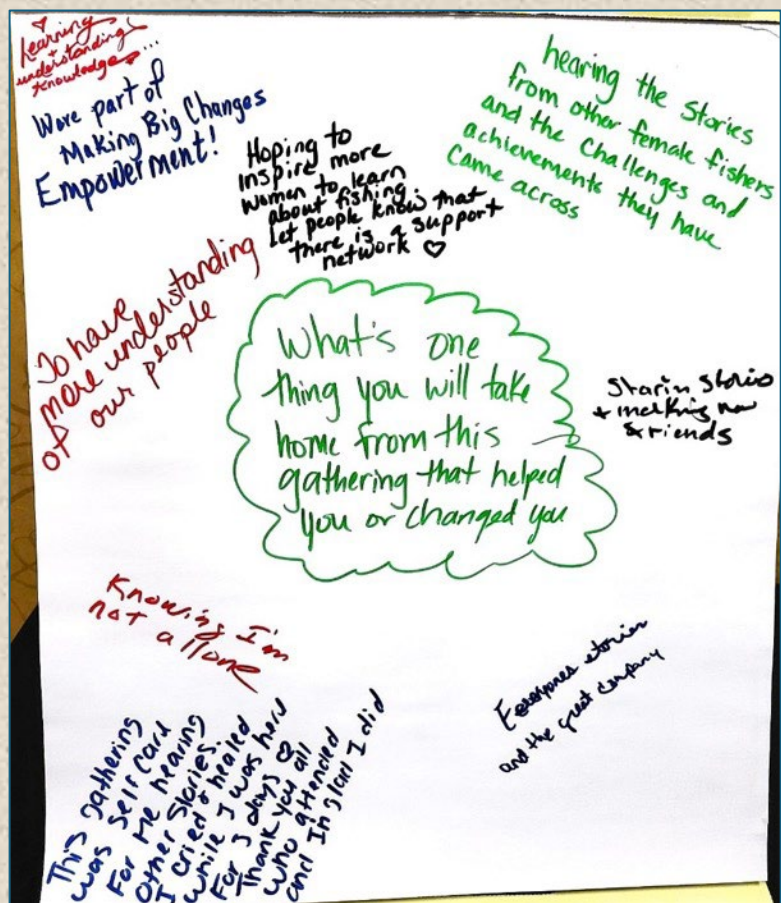 Learning
+
understanding
knowledge...
Were part of
Making Big Changes
Empowerment!
Hoping to
inspire more
women to learn
about fishing.
Let people know that
there is a support
network ♡
hearing the Stories
from other female fishers
and the challenges and
achievements they have
came across
To have
more understanding
of our people
What's one
thing you will take
home from this
gathering that helped
you or changed you
Starin stories
+ making new
friends
Knowing I'm
not allone
Everyones stories
and the great company
This gathering
was self care
For me hearing
Other Stories.
I cried + healed
while I was here
For 3 days ♡
Thank you all
who attended
and I'm glad I did